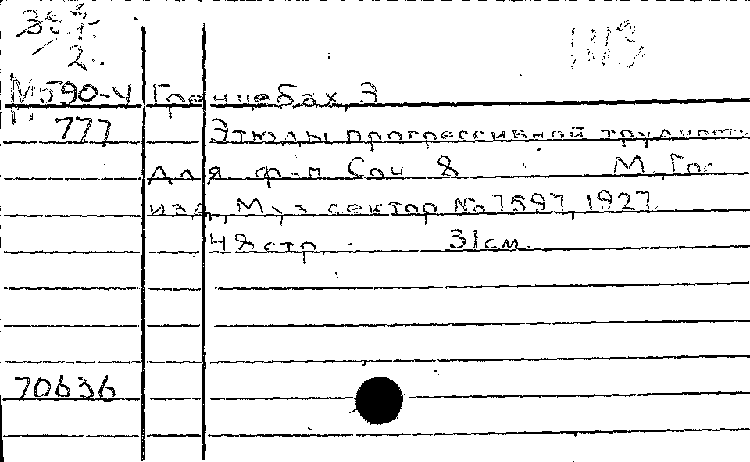 2.
М590-4 Гронцебах, Э
777 Этюды прогрессивной трудности
для ф-п Соч 8 М, Гос
изд, Муз сектор № 7597, 1927
48 стр 31 см.
70636